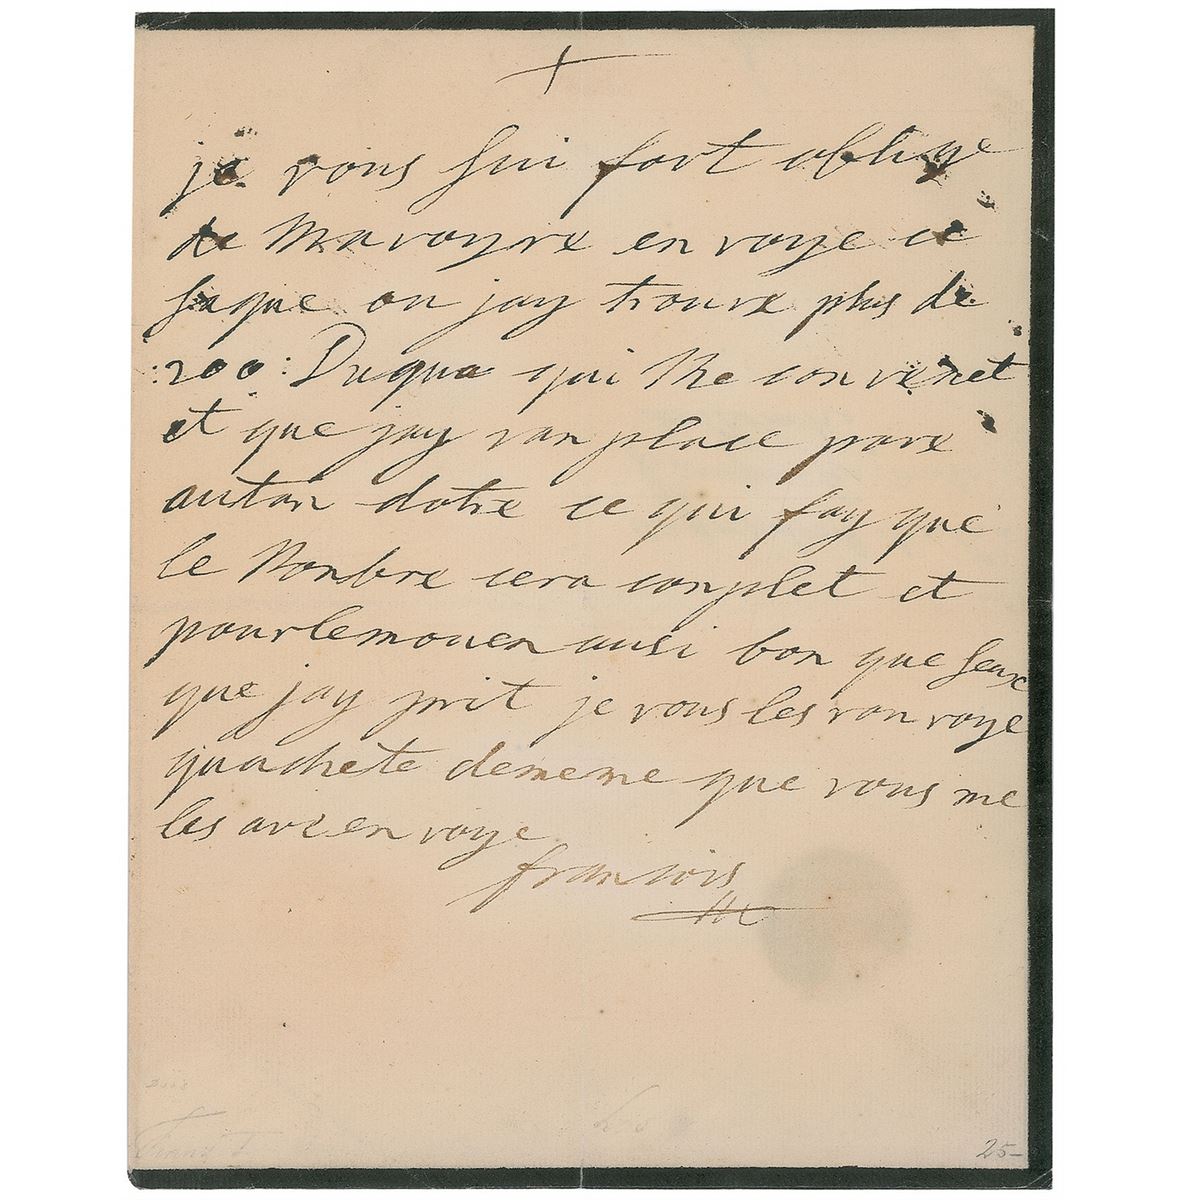 je vous sui fort oblige
de Mavoyre en voye ce
saque ou jay trouve plus de
:200: Duqua qui Me convenet
et que jay ranplace pare
autan dotre ce qui fay que
le Nonbre cera conplet et
pourlemouen ausi bon que seux
que jay prit je vous les ran voye
quachete dememe que vous me
les avienvoye
francois
25-